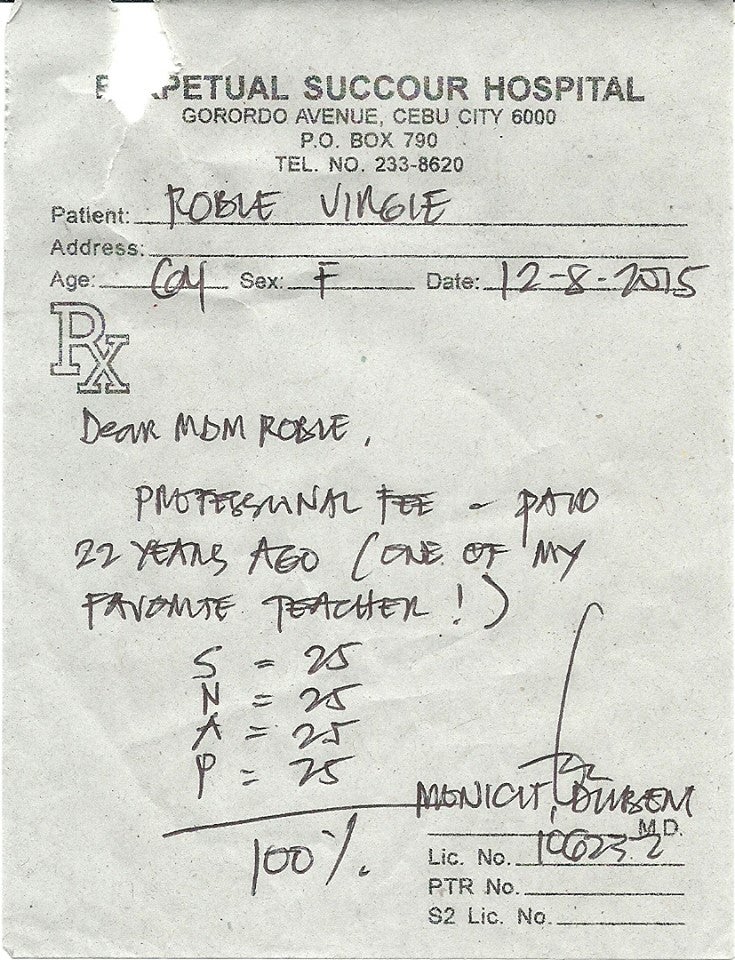 PERPETUAL SUCCOUR HOSPITAL
GORORDO AVENUE, CEBU CITY 6000
P.O. BOX 790
TEL. NO. 233-8620
Patient: ROBLE VIRGIE
Address:
Age: 60y Sex: F Date: 12-8-2015
Rx
Dear MDM ROBLE,
PROFESSIONAL FEE - PAID
22 YEARS AGO (ONE OF MY
FAVORITE TEACHER!)
S = 25
N = 25
A = 25
P = 25
100%
M.D.
Lic. No. 106232
PTR No.
S2 Lic. No.